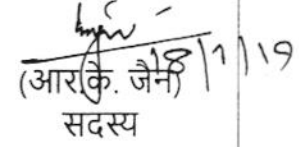 18/1/19
(आर.के. जैन)
सदस्य